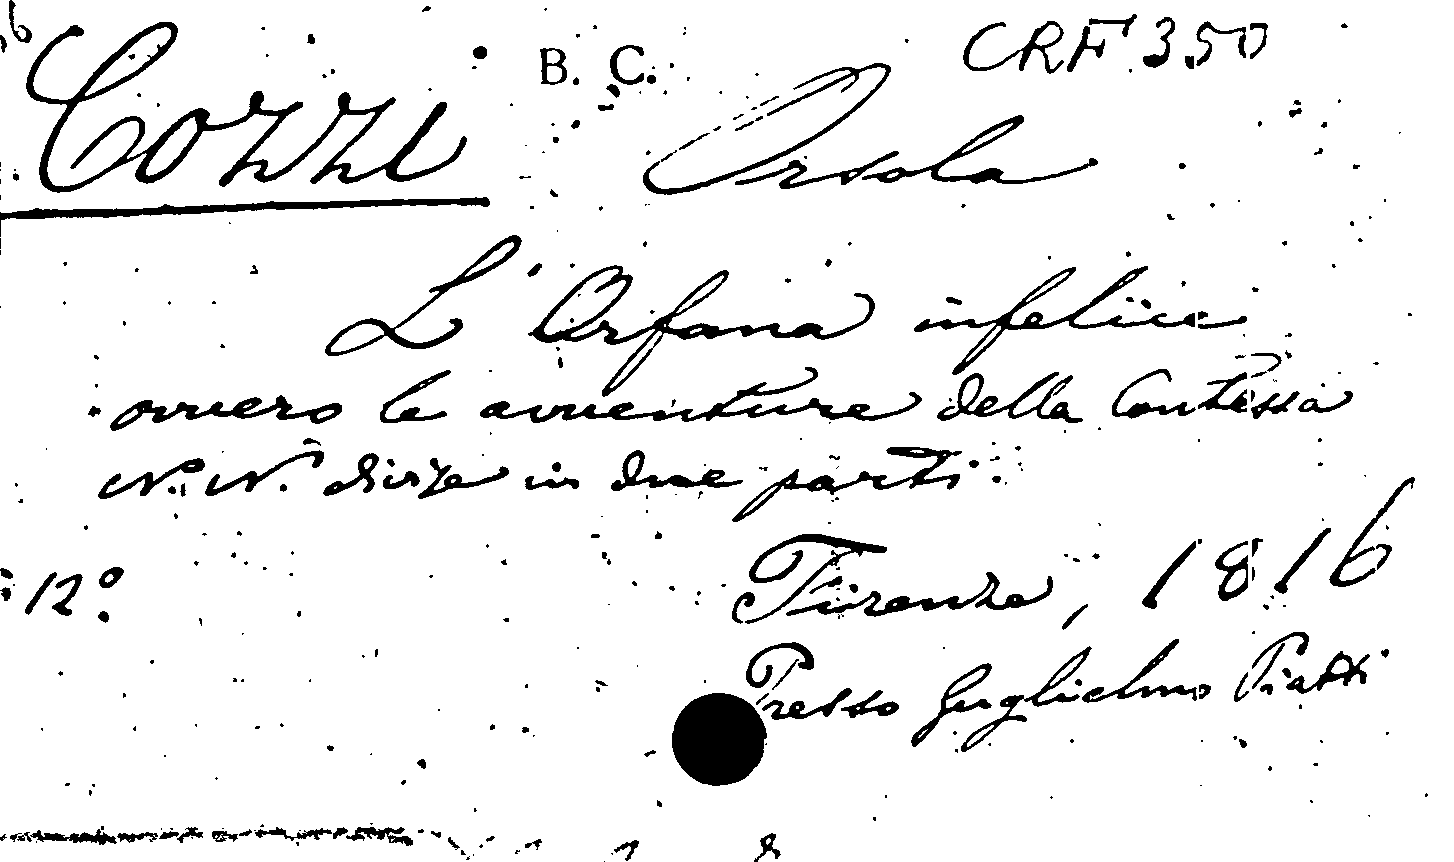 B. C.
CRF 350
Cozzi Orsola
L'Orfana infelice
ovvero le avventure della Contessa
N. N. divise in due parti.
Firenze, 1816
12º
Presso Guglielmo Piatti